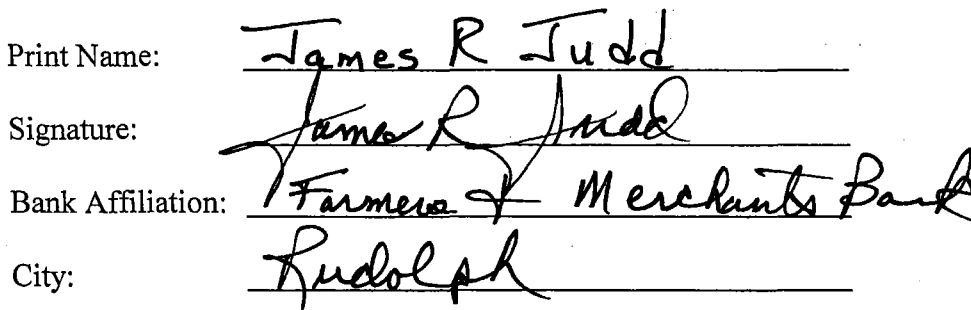 Print Name: James R Judd
Signature: James R Judd
Bank Affiliation: Farmers & Merchants Bank
City: Rudolph